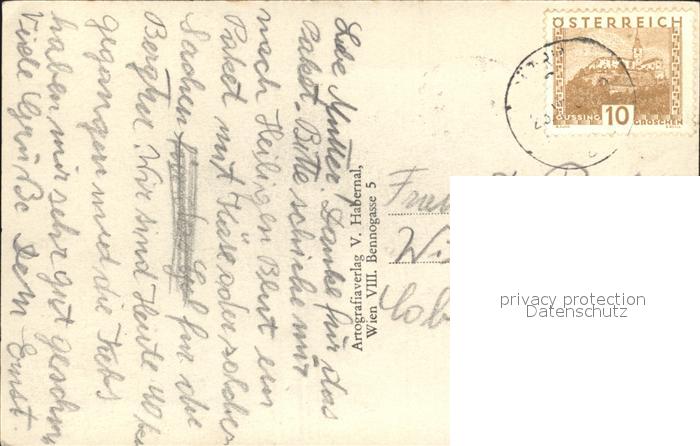 Liebe Mutter! Danke für das
Paket. Bitte schicke mir
nach Heiligen Blut ein
Paket mit Käse oder solchen
Sachen für die
Bergtur. Wir sind Heute 40 km
gegangen und die Keks
haben mir sehr gut geschm
Viele Grüße Dein Ernst.
Artografiaverlag V. Habernal,
Wien VIII. Bennogasse 5
ÖSTERREICH
GÜSSING 10 GROSCHEN
Frau
Wi
privacy protection
Datenschutz